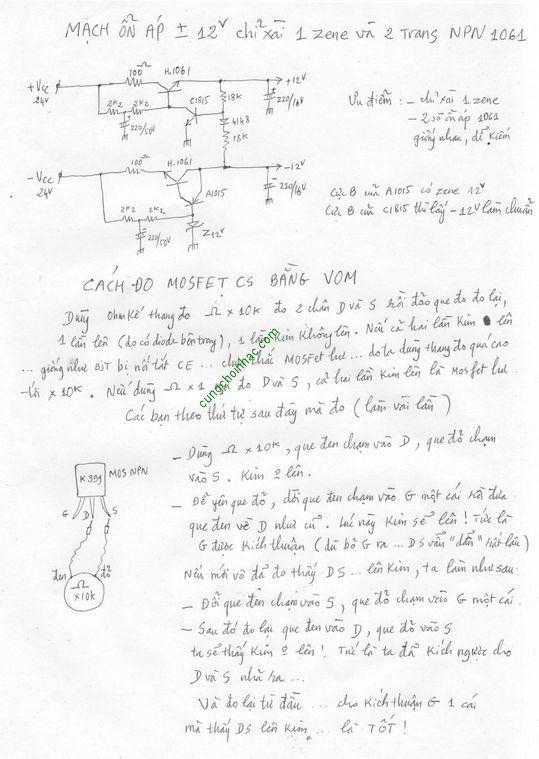 MẠCH ỔN ÁP ± 12V chỉ xài 1 zene và 2 Trans NPN 1061
+Vcc
24V
100Ω
H.1061
+12V
2K2
2K2
C1815
18K
4148
18K
220/50V
220/16V
Ưu điểm : - chỉ xài 1 zene
- 2 sò ổn áp 1061
giống nhau, dể kiếm
-Vcc
24V
100Ω
H.1061
-12V
A1015
2K2
2K2
220/50V
Z12V
220/16V
Cực B của A1015 có zene 12V
Cực B của C1815 thì lấy -12V làm chuẩn
CÁCH ĐO MOSFET CS BẰNG VOM
Dùng Ohm Kế thang đo Ω x 10K đo 2 chân D và S rồi đão que đo đo lại,
1 lần lên (do có diode bên trong), 1 lần Kim không lên. Nếu cả hai lần Kim lên
... giống như BJT bị nối tắt CE ... MOSFet hư ... do ta dùng thang đo quá cao
x 10K. Nếu dùng Ω x 1 đo D và S, cả hai lần Kim lên là Mosfet hư..
cungchoinhac.com
Các bạn theo thứ tự sau đây mà đo (làm vài lần)
K399
MOS NPN
G D S
đen
đỏ
Ω
x10K
- Dùng Ω x 10K, que đen chạm vào D, que đỏ chạm
vào S. Kim 0 lên.
- Để yên que đỏ, dời que đen chạm vào G một cái rồi đưa
que đen về D như cũ. Lúc này Kim sẽ lên ! Tức là
G được Kích thuận (dù bỏ G ra ... DS vẫn "dẫn" rất lâu)
Nếu mới vô đã đo thấy DS ... lên Kim, ta làm như sau.
- Đổi que đen chạm vào S, que đỏ chạm vào G một cái.
- Sau đó đo lại que đen vào D, que đỏ vào S
ta sẽ thấy Kim 0 lên ! Tức là ta đã Kích ngược cho
D và S nhã ra ...
Và đo lại từ đầu ... cho Kích thuận G 1 cái
mà thấy DS lên Kim ... là TỐT !